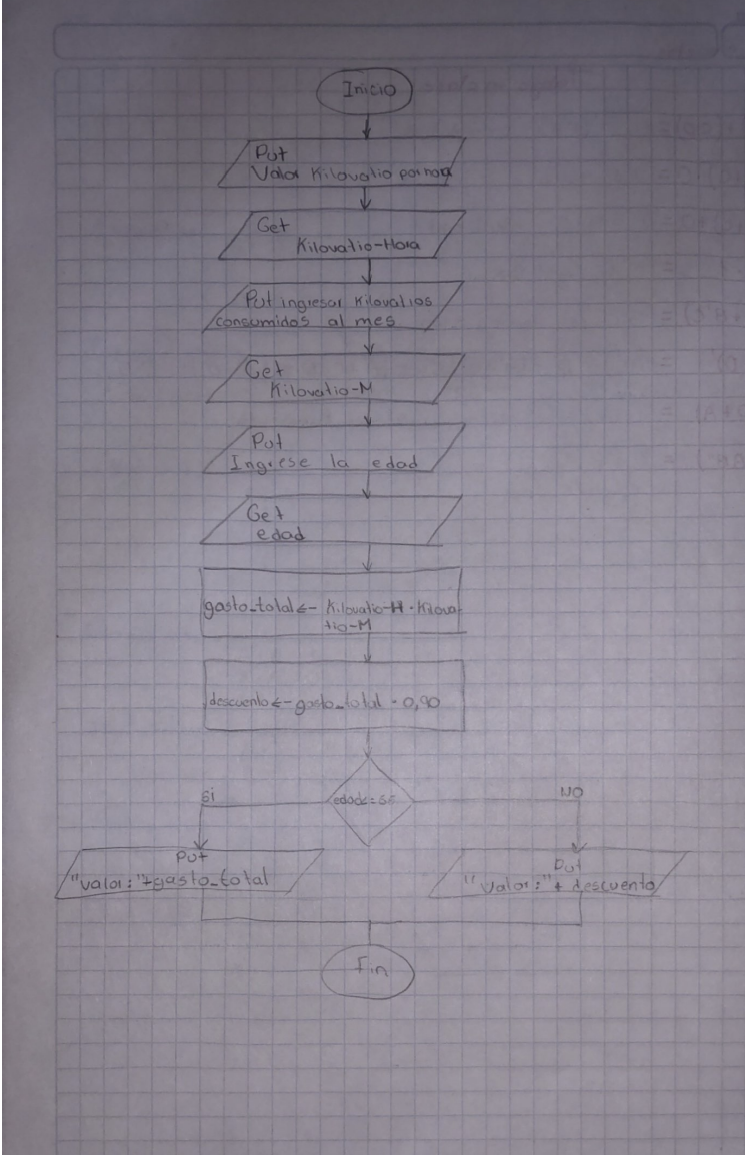 Inicio
Put
Valor Kilovatio por hora
Get
Kilovatio-Hora
Put ingresar Kilovatios
consumidos al mes
Get
Kilovatio-M
Put
Ingrese la edad
Get
edad
gasto_total <- Kilovatio-H * Kilova-
tio-M
descuento <- gasto_total * 0,90
Si
NO
Put
"Valor:"+gasto_total
Put
"Valor:"+ descuento
Fin